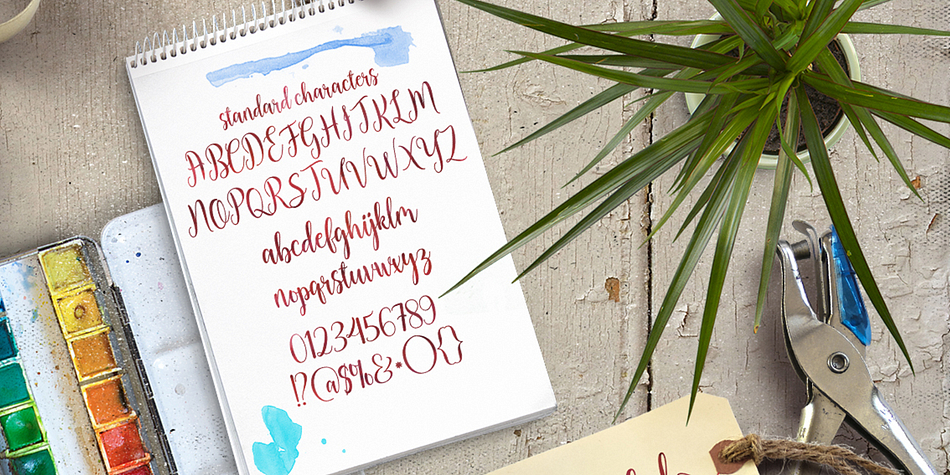 standard characters
ABCDEFGHIJKLM
NOPQRSTUVWXYZ
abcdefghijklm
nopqrstuvwxyz
0123456789
!?@$%&*(){}